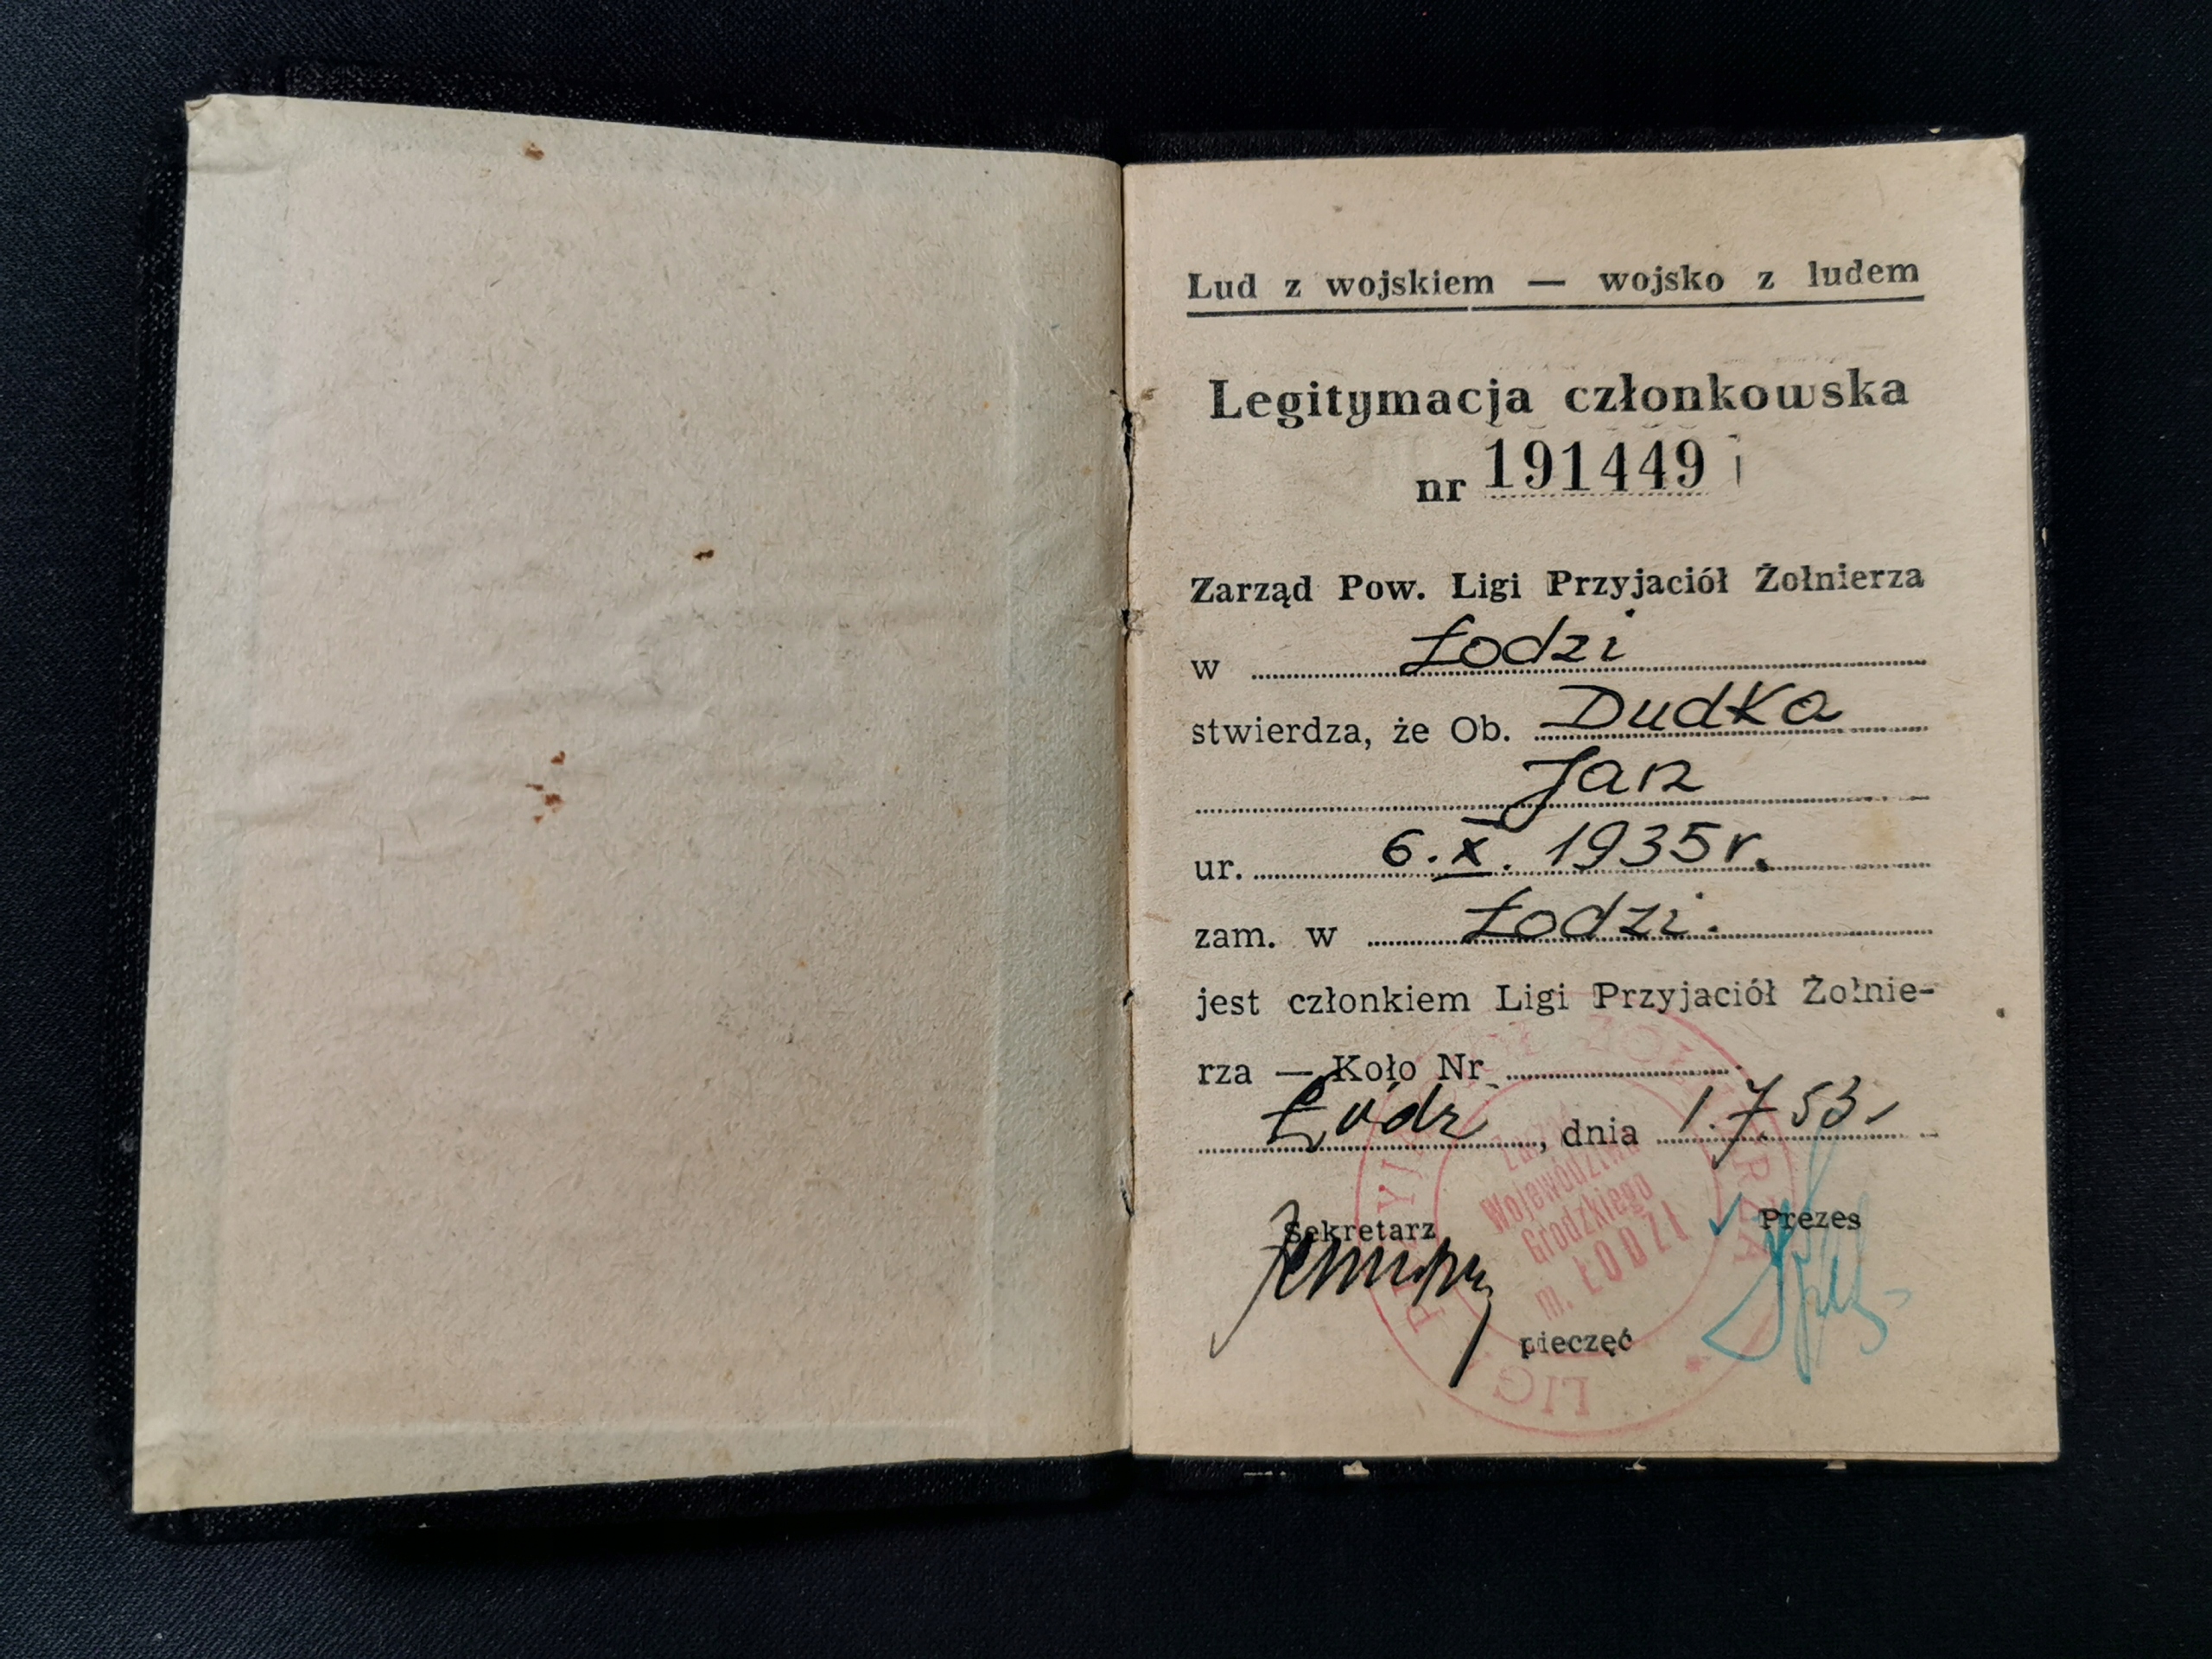 Lud z wojskiem — wojsko z ludem
Legitymacja członkowska
nr 191449
Zarząd Pow. Ligi Przyjaciół Żołnierza
w Łodzi
stwierdza, że Ob. Dudka
Jan
ur. 6.X. 1935r.
zam. w Łodzi.
jest członkiem Ligi Przyjaciół Żołnie-
rza — Koło Nr
Łódź, dnia 1.7.53.
Sekretarz Prezes
Województwa
Grodzkiego
m. ŁODZI
pieczęć